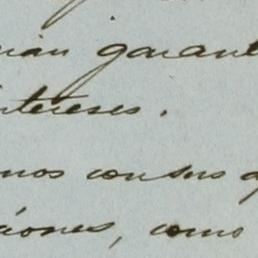 rián garant
intereses.
mos con sus
ciones, como